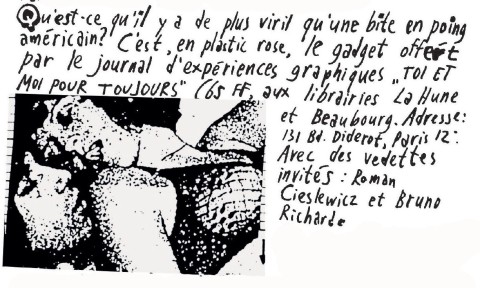 Qu'est-ce qu'il y a de plus viril qu'une bite en poing
américain? C'est, en plastic rose, le gadget offert
par le journal d'expériences graphiques „TOI ET
MOI POUR TOUJOURS" (65 FF, aux librairies La Hune
et Beaubourg. Adresse:
131 Bd. Diderot, Paris 12e.
Avec des vedettes
invités : Roman
Cieslewicz et Bruno
Richarde